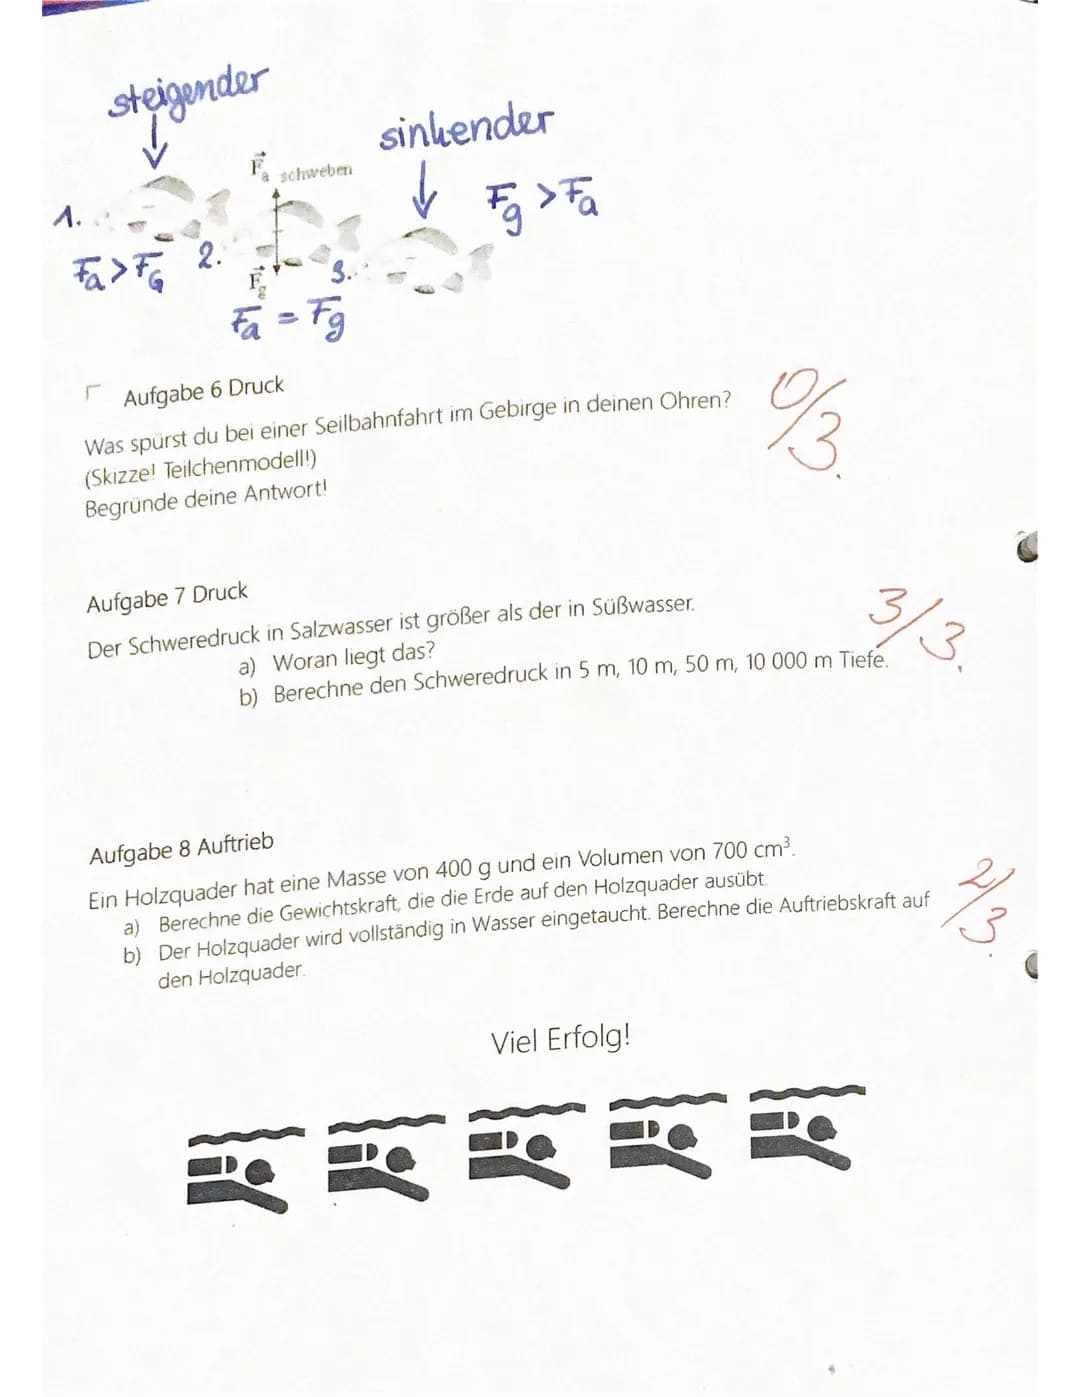 steigender
sinkender
F⃗a schweben
Fg > Fa
1.
Fa > FG
2.
3.
F⃗g
Fa = Fg
Aufgabe 6 Druck
0/3.
Was spürst du bei einer Seilbahnfahrt im Gebirge in deinen Ohren?
(Skizze! Teilchenmodell!)
Begründe deine Antwort!
Aufgabe 7 Druck
3/3.
Der Schweredruck in Salzwasser ist größer als der in Süßwasser.
a) Woran liegt das?
b) Berechne den Schweredruck in 5 m, 10 m, 50 m, 10 000 m Tiefe.
Aufgabe 8 Auftrieb
Ein Holzquader hat eine Masse von 400 g und ein Volumen von 700 cm³.
2/3.
a) Berechne die Gewichtskraft, die die Erde auf den Holzquader ausübt.
b) Der Holzquader wird vollständig in Wasser eingetaucht. Berechne die Auftriebskraft auf
den Holzquader.
Viel Erfolg!